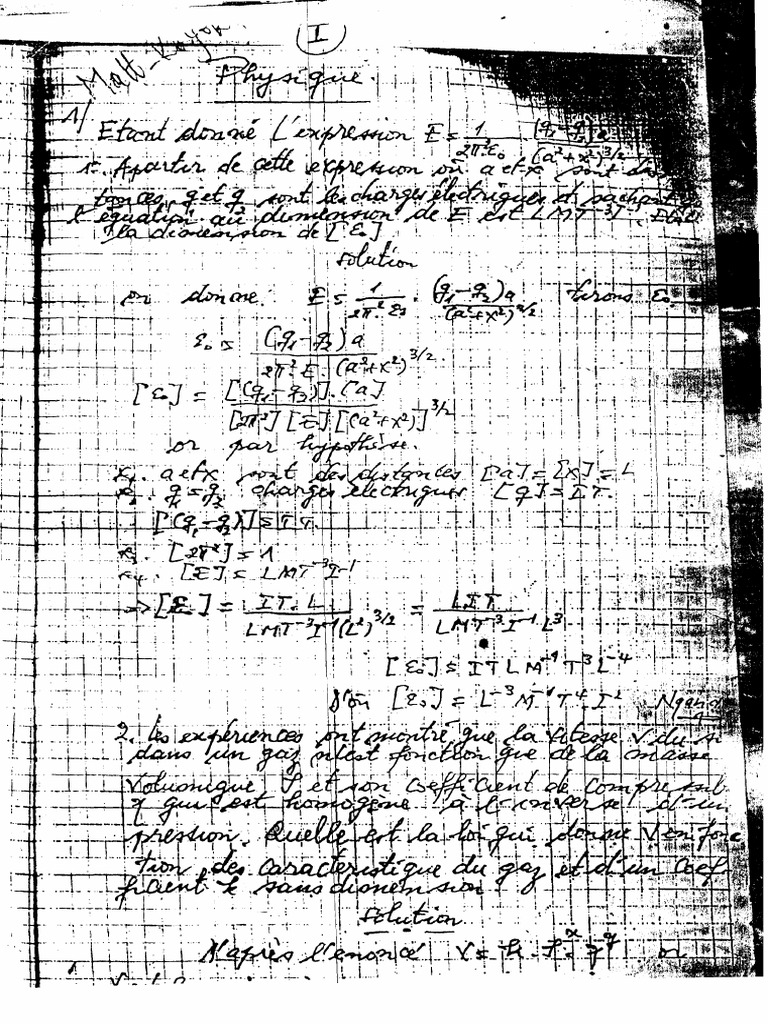 I
Matt-
Physique.
1/ Etant donné l'expression E = 1/(2π²ε₀) (q₁-q₂)a/(a²+x²)^3/2
1. Apartir de cette expression où a et x sont dis
tances, q et q sont les charges électriques et sachant
l'équation au dimension de E est LMT⁻³I
la dimension de [ε₀]
Solution
on donne: E = 1/(2π²ε₀) . (q₁-q₂)a/(a²+x²)^3/2 tirons ε₀.
ε₀ = (q₁-q₂)a/(2π².E.(a²+x²)^3/2)
[ε₀] = [(q₁-q₂)].[a]/([2π²][E][(a²+x²)]^3/2)
or par hypothèse.
. a et x sont des distances [a]=[x]=L
. q₁=q₂ charges électriques [q]=IT.
[(q₁-q₂)]=IT.
. [2π²]=1
. [E]=LMT⁻³I⁻¹
=> [ε₀] = IT.L/(LMT⁻³I⁻¹(L²)^3/2) = LIT/(LMT⁻³I⁻¹L³)
[ε₀] = ITLM⁻¹T³L⁻⁴
D'où [ε₀] = L⁻³M⁻¹T⁴.I²
2. Les expériences ont montré que la vitesse V du
dans un gaz n'est fonction que de la masse
Volumique ρ et son coefficient de
qui est homogène à l'inverse d'un
pression. Quelle est la loi qui donne V en fonc
tion des caractéristique du gaz et d'un coef
ficient k sans dimension
Solution
D'après l'enoncé V = k.ρ^x.γ^y or